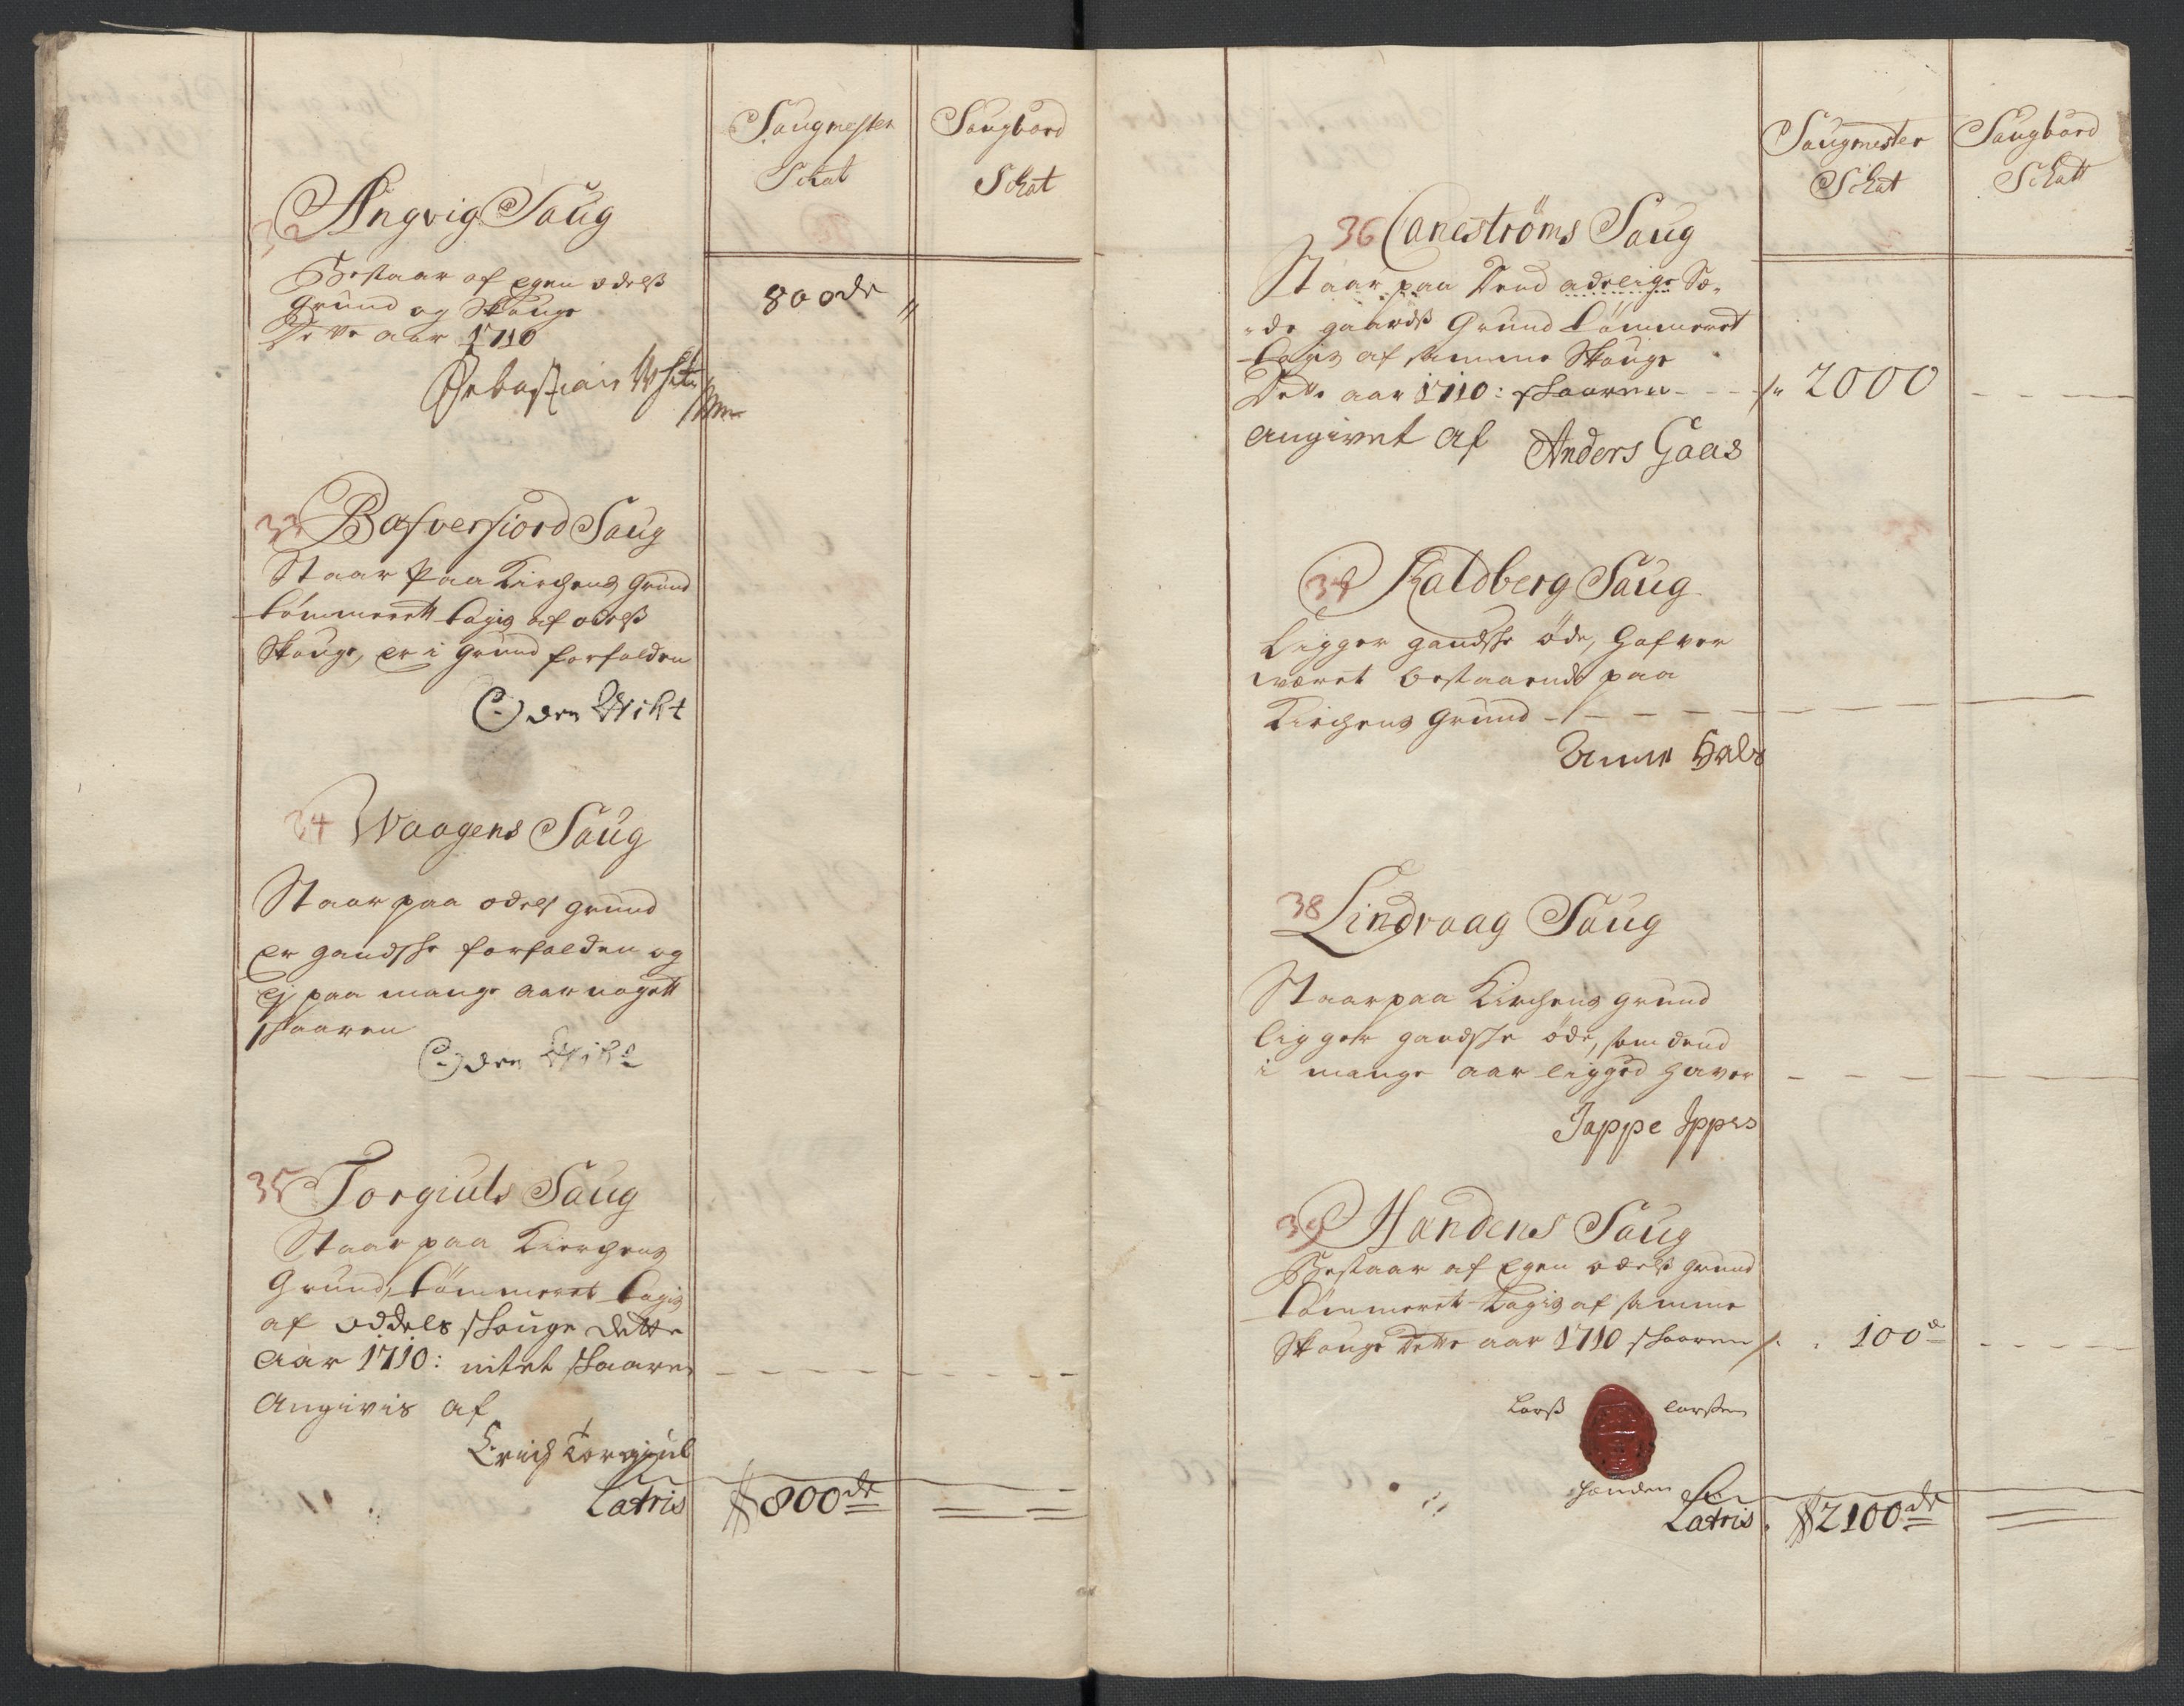 Saugmester
Schat
Saugbord
Schat
32
Angvig Saug
Bestaar af egen odelß
Grund og Skouge
Dette aar 1710
800 dr
"
Sebastian
33
Bafverfiord Saug
Staar Paa Kirchens Grund
tømmerett tagis af odelß
Skouge, er i grund forfalden
Oden Wiht
34 Waagens Saug
Staar paa odels grund
er gandske forfalden og
ej paa mange aar nogett
skaaren
Oden
35 Torgiuls Saug
Staar paa Kierchens
Grund, tømmeret tagis
af oddels skouge dette
aar 1710: intet skaaren
Angivis af
Erich Torgiul
Latris
800 dr
Saugmester
Schat
Saugbord
Schatt
36 Caneströms Saug
Staar paa Dend adelige Sæ-
-de gaardß Grund tømmeret
tagis af samme Skouge
Dette aar 1710: skaaren
2000
Angivet af Anders Gaas
37
Kaldberg Saug
Ligger gandske øde, hafver
været bestaaende paa
Kirchens Grund
38
Lindvaag Saug
Staar paa Kirchens grund
ligger gandske øde, som dend
i mange aar ligged haver
Jappe Ipps
39
Handens Saug
Bestaar af egen odelß grund
tømmeret tagis af samme
Skouge Dette aar 1710 skaaren
100
Larß
larsen
handen
Latris
2100 dr